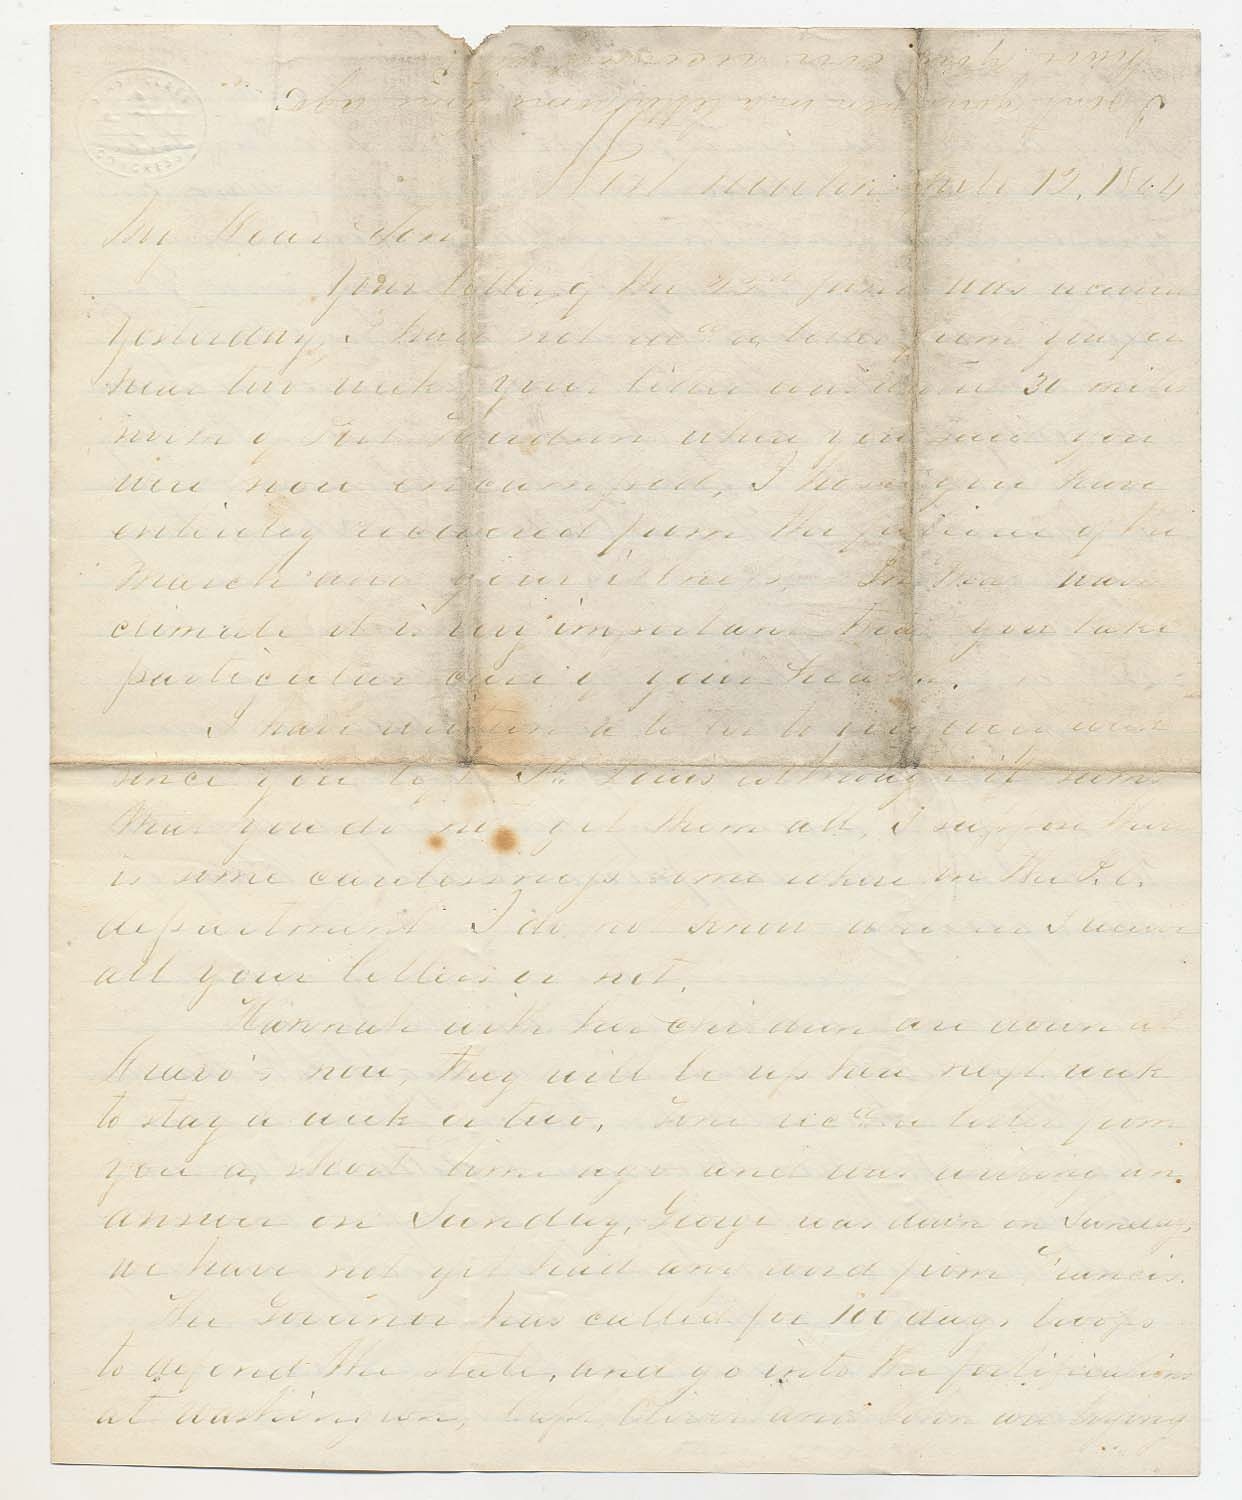 have you ever received it
I sent you my a letter some time ago
July 12, 1864
My Dear Son
Your letter of the 23rd June was received
yesterday, I have not recd a letter from you for
near two weeks your letter was dated 30 miles
north of Port Hudson where you said you
were now encamped, I hope you have
entirely recovered from the fatigue of the
March and your illness. In that warm
climate it is very important that you take
particular care of your health.
I have written a letter to you every week
since you left St Louis although it seems
that you do not get them all, I suppose there
is some carelessness some where in the P.O.
department I do not know whether I receive
all your letters or not.
Hannah with her children are down at
now, they will be up here next week
to stay a week or two, recd a letter from
you a short time ago and was writing an
answer on Sunday, George was down on Sunday,
we have not yet had any word from Francis.
The Governor has called for 100 days troops
to defend the state, and go into the fortifications
at Washington, Capt Oliver and John are trying